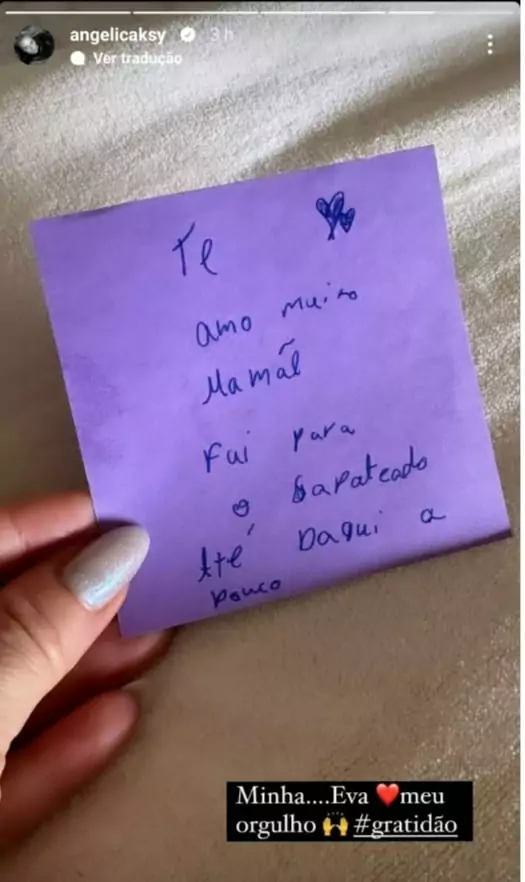 angelicaksy 3 h
Ver tradução
Te
amo muito
Mamãe
Fui para
o Sapateado
Até Daqui a
pouco
Minha....Eva ❤️meu
orgulho 🙌 #gratidão